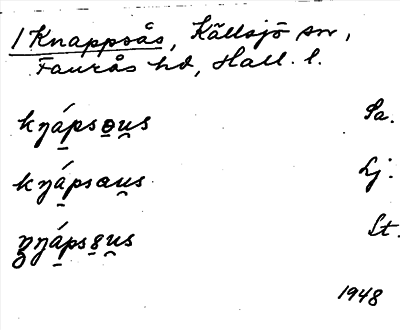 1 Knappsås, Källsjö sn,
Faurås hd, Hall. l.
kŋápsøu̯s Sa.
kŋápsau̯s Lj.
ŋŋáps8u̯s St.
1948